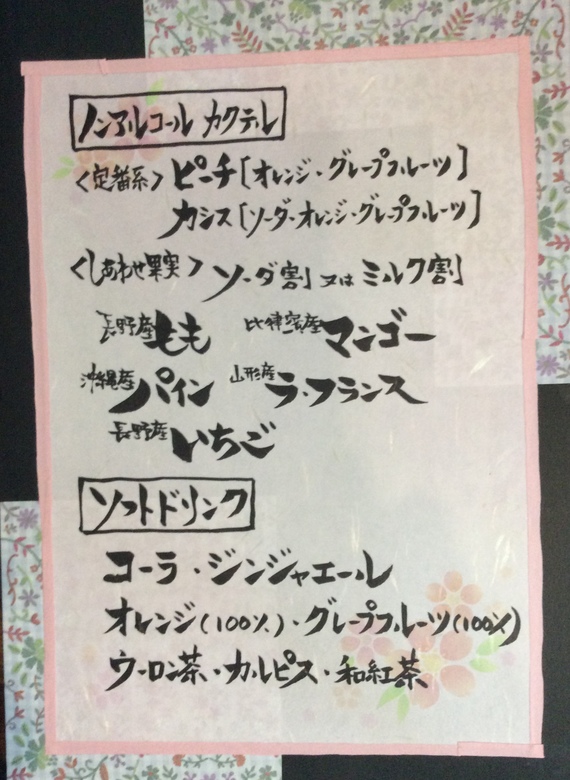 ノンアルコール カクテル
〈定番系〉ピーチ[オレンジ・グレープフルーツ]
カシス[ソーダ・オレンジ・グレープフルーツ]
〈しあわせ果実〉ソーダ割 又は ミルク割
長野産もも 比律賓産マンゴー
沖縄産パイン 山形産ラ・フランス
長野産いちご
ソフトドリンク
コーラ・ジンジャエール
オレンジ(100%)・グレープフルーツ(100%)
ウーロン茶・カルピス・和紅茶